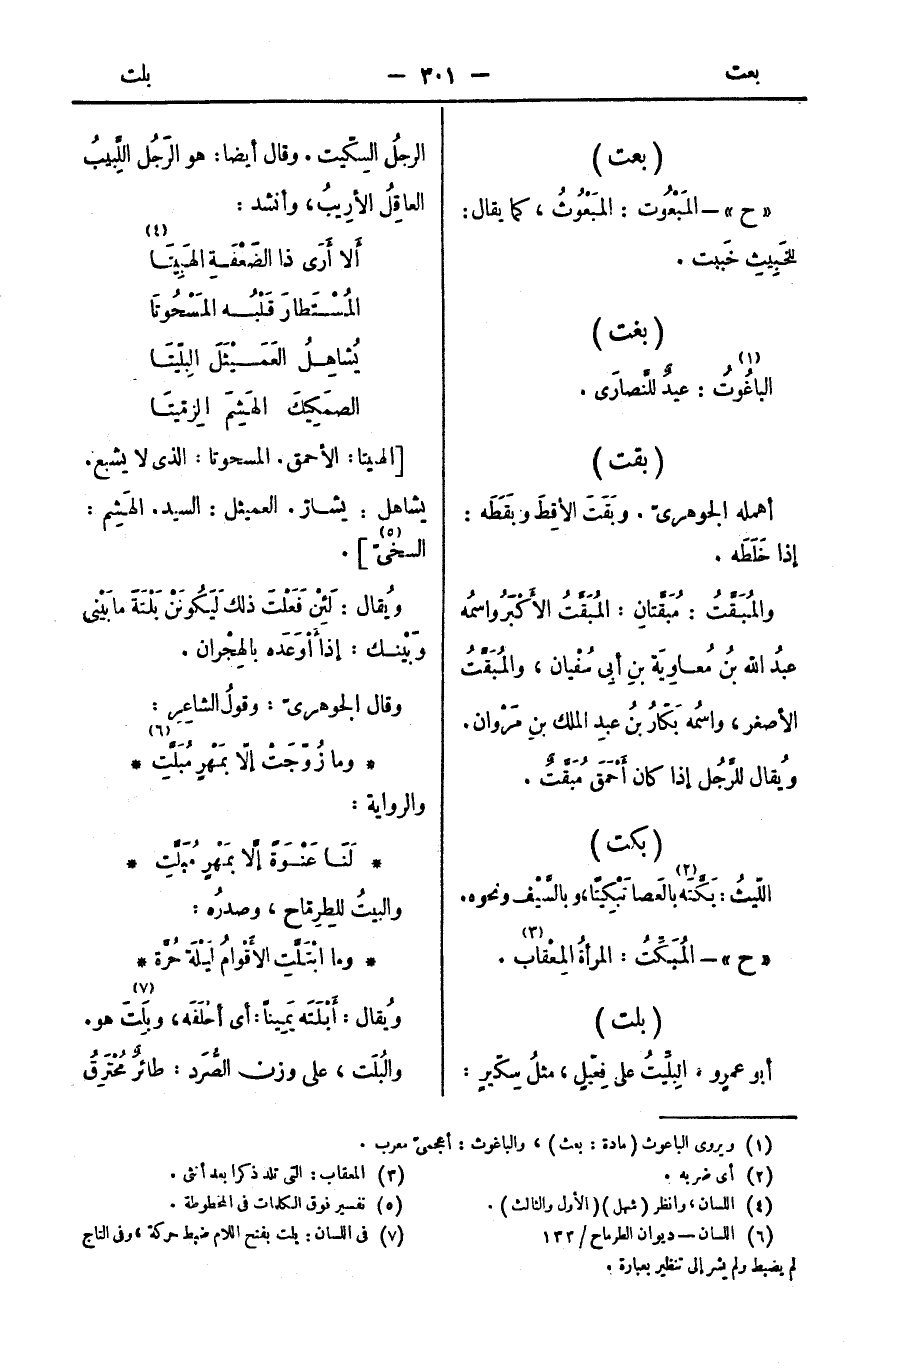 بعت — ٣٠١ — بلت
(بعت)
«ح» — المَبْعُوت : المَبْعُوثُ ، كما يقال :
للخَبِيثِ خَبِيت .
(بغت)
الباغُوتُ (١) : عيدٌ للنَّصارَى .
(بقت)
أهمله الجوهرىّ . وبَقَتَ الأقِطَ وبَقَطَه :
إذا خَلَطَه .
والمُبَقَّتُ : مُبَقَّتان : المُبَقَّتُ الأَكْبَرُ واسمُه
عبدُ الله بنُ مُعاوِيَة بنِ أبى سُفْيان ، والمُبَقَّتُ
الأصغر ، واسمُه بَكّارُ بنُ عبدِ الملك بنِ مَرْوان .
ويُقال للرَّجُل إذا كان أَحْمَقَ مُبَقَّتٌ .
(بكت)
اللّيثُ : بَكَّتَه (٢) بالعَصا تَبْكِيتًا ، وبالسَّيْف ونحوه .
«ح» — المُبَكِّتُ : المرأةُ المِعْقاب (٣) .
(بلت)
أبو عمرٍو ، البِلِّيتُ على فِعِّيلٍ ، مثلُ سِكِّيرٍ :
الرجلُ السِكِّيت . وقال أيضا : هو الرَّجُل اللَّبِيبُ
العاقِلُ الأريبُ ، وأنشد :
أَلا أَرَى ذا الضَّعْفَةِ الهَبِيتَا (٤)
المُسْتَطارَ قَلْبُه المَسْحُوتَا
يُشاهِلُ العَمَيْثَلَ البِلِّيتَا
الصمَكِيكَ الهَشِمَ الزِمِّيتَا
[الهبيتا : الأحمق . المسحوتا : الذى لا يشبع .
يشاهل : يشار . العميثل : السيد . الهَشِم :
السخىّ (٥)] .
ويُقال : لَئِنْ فَعَلْتَ ذلك لَيَكُونَنَّ بَلْتَةَ ما بَيْنِى
وبَيْنك : إذا أَوْعَدَه بالهِجْران .
وقال الجوهرىّ : وقولُ الشاعِرِ :
* وما زُوِّجَتْ إلّا بمَهْرٍ مُبَلَّتِ (٦) *
والرواية :
* لَنَا عَنْوَةً إلَّا بمَهْرٍ مُبَلَّتِ *
والبيتُ للطِرِمّاح ، وصدرُه :
* وما ابْتَلَّتِ الأَقْوامُ لَيْلَةَ حُرَّة *
ويُقال : أَبْلَتَه يَمِيناً : أى أحْلَفَه ، وبِلَتَ (٧) هو .
والبُلَت ، على وزن الصُّرَد : طائرٌ مُحْتَرِقُ
(١) ويروى الباعوث (مادة : بعث) ، والباغوث : أعجمىّ معرب .
(٢) أى ضربه .
(٣) المعقاب : التى تلد ذكرا بعد أنثى .
(٤) اللسان ، وانظر (شهل) (الأول والثالث) .
(٥) تفسير فوق الكلمات فى المخطوطة .
(٦) اللسان — ديوان الطرماح / ١٣٢
(٧) فى اللسان : بلت بفتح اللام ضبط حركة ، وفى التاج
لم يضبط ولم يشر إلى تنظير بعبارة .